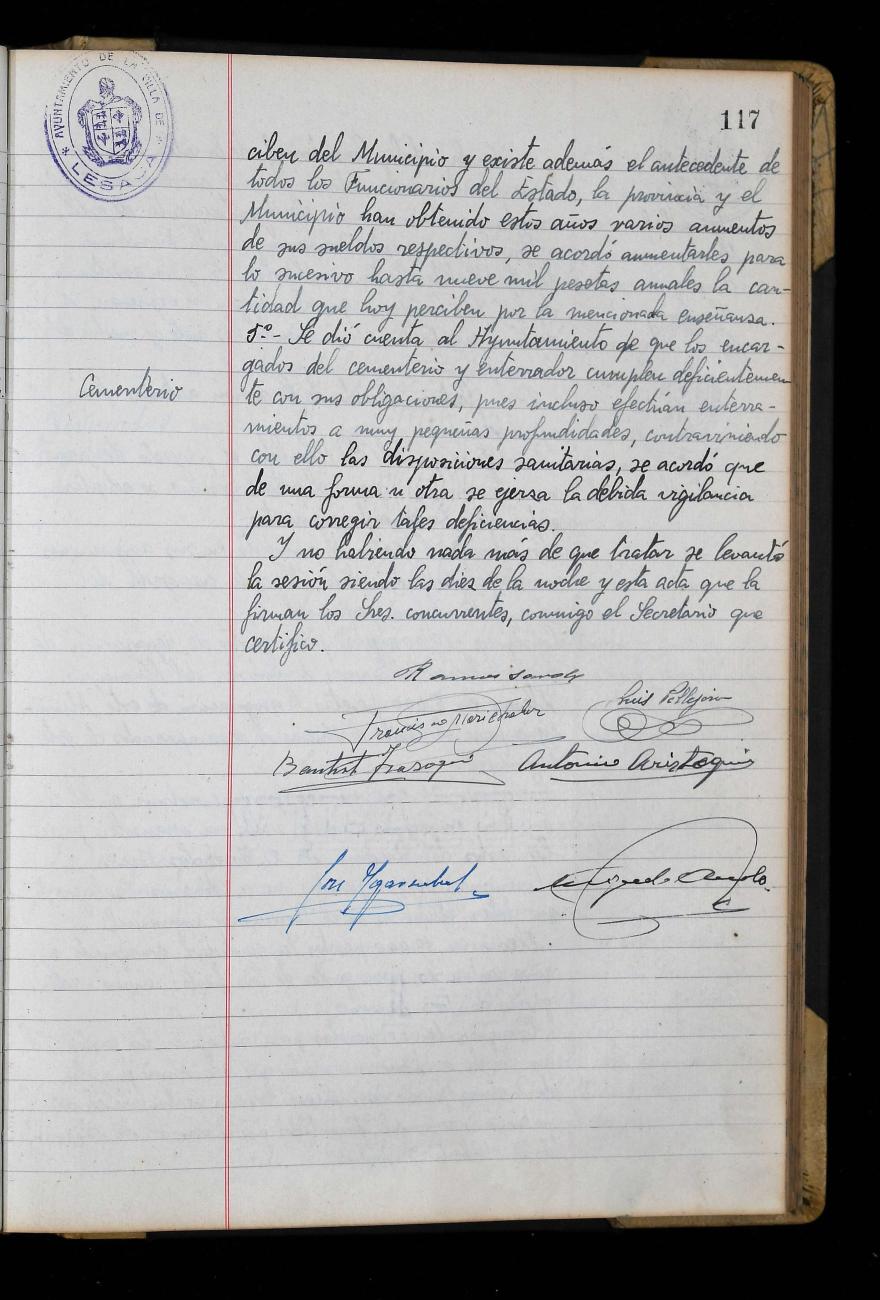 AYUNTAMIENTO DE LA VILLA DE
LESACA
117
ciben del Municipio y existe además el antecedente de
todos los Funcionarios del Estado, la provincia y el
Municipio han obtenido estos años varios aumentos
de sus sueldos respectivos, se acordó aumentarles para
lo sucesivo hasta nueve mil pesetas anuales la can-
tidad que hoy perciben por la mencionada enseñansa.
5º- Se dió cuenta al Ayuntamiento de que los encar-
Cementerio
gados del cementerio y enterrador cumplen deficientemen
te con sus obligaciones, pues incluso efectúan enterra-
mientos a muy pequeñas profundidades, contraviniendo
con ello las disposiciones sanitarias, se acordó que
de una forma u otra se ejersa la debida vigilancia
para corregir tales deficiencias.
Y no habiendo nada más de que tratar se levantó
la sesión siendo las diez de la noche y esta acta que la
firman los Sres. concurrentes, conmigo el Secretario que
certifico.
Luis
Francisco
Antonio